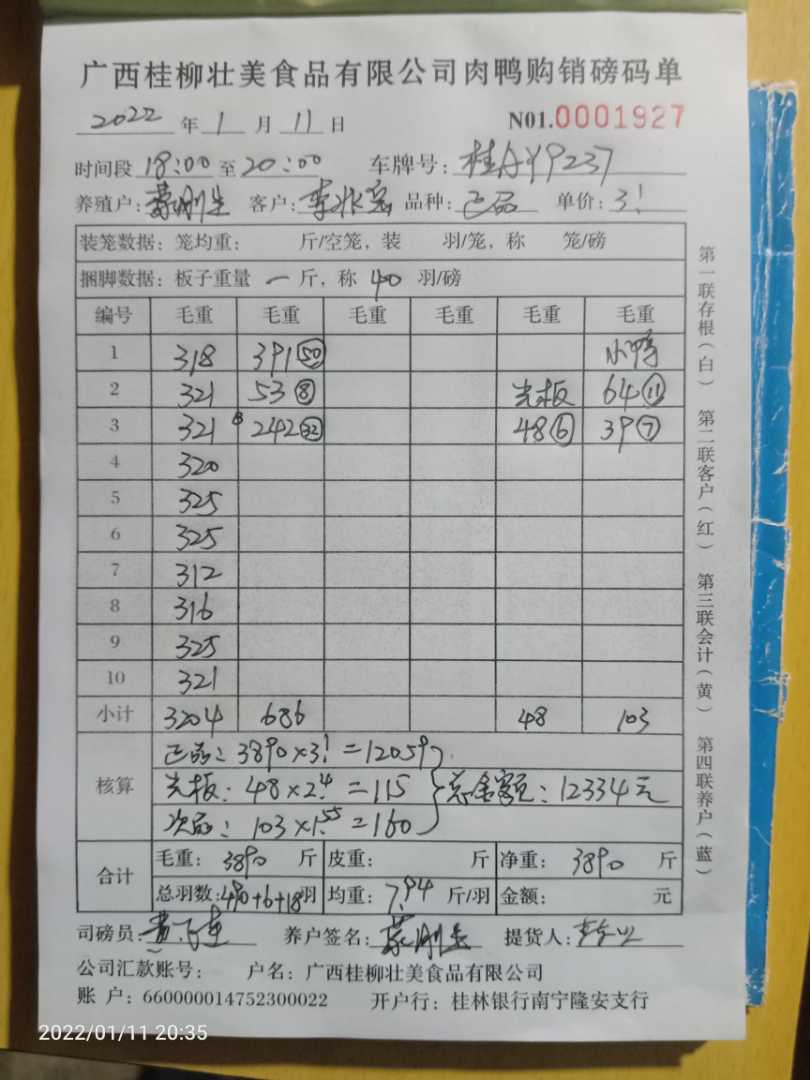 广西桂柳壮美食品有限公司肉鸭购销磅码单
2022 年 1 月 11 日 N01.0001927
时间段 18:00 至 20:00 车牌号: 桂AY9237
养殖户: 蒙刚生 客户: 李兆宏 品种: 正品 单价: 3.1
装笼数据: 笼均重: 斤/空笼, 装 羽/笼, 称 笼/磅
捆脚数据: 板子重量 一 斤, 称 40 羽/磅
编号 毛重 毛重 毛重 毛重 毛重 毛重
1 318 391 50 小鸭
2 321 53 8 光板 64 11
3 321 242 32 48 6 39 7
4 320
5 325
6 325
7 312
8 316
9 325
10 321
小计 3204 686 48 103
正品: 3890×3.1=12059
核算 光板: 48×2.4=115 总金额: 12334元
次品: 103×1.55=160
合计 毛重: 3890 斤 皮重: 斤 净重: 3890 斤
总羽数: 490+6+18羽 均重: 7.94 斤/羽 金额: 元
司磅员: 养户签名: 蒙刚生 提货人:
公司汇款账号: 户名: 广西桂柳壮美食品有限公司
账 户: 660000014752300022 开户行: 桂林银行南宁隆安支行
第一联存根(白) 第二联客户(红) 第三联会计(黄) 第四联养户(蓝)
2022/01/11 20:35